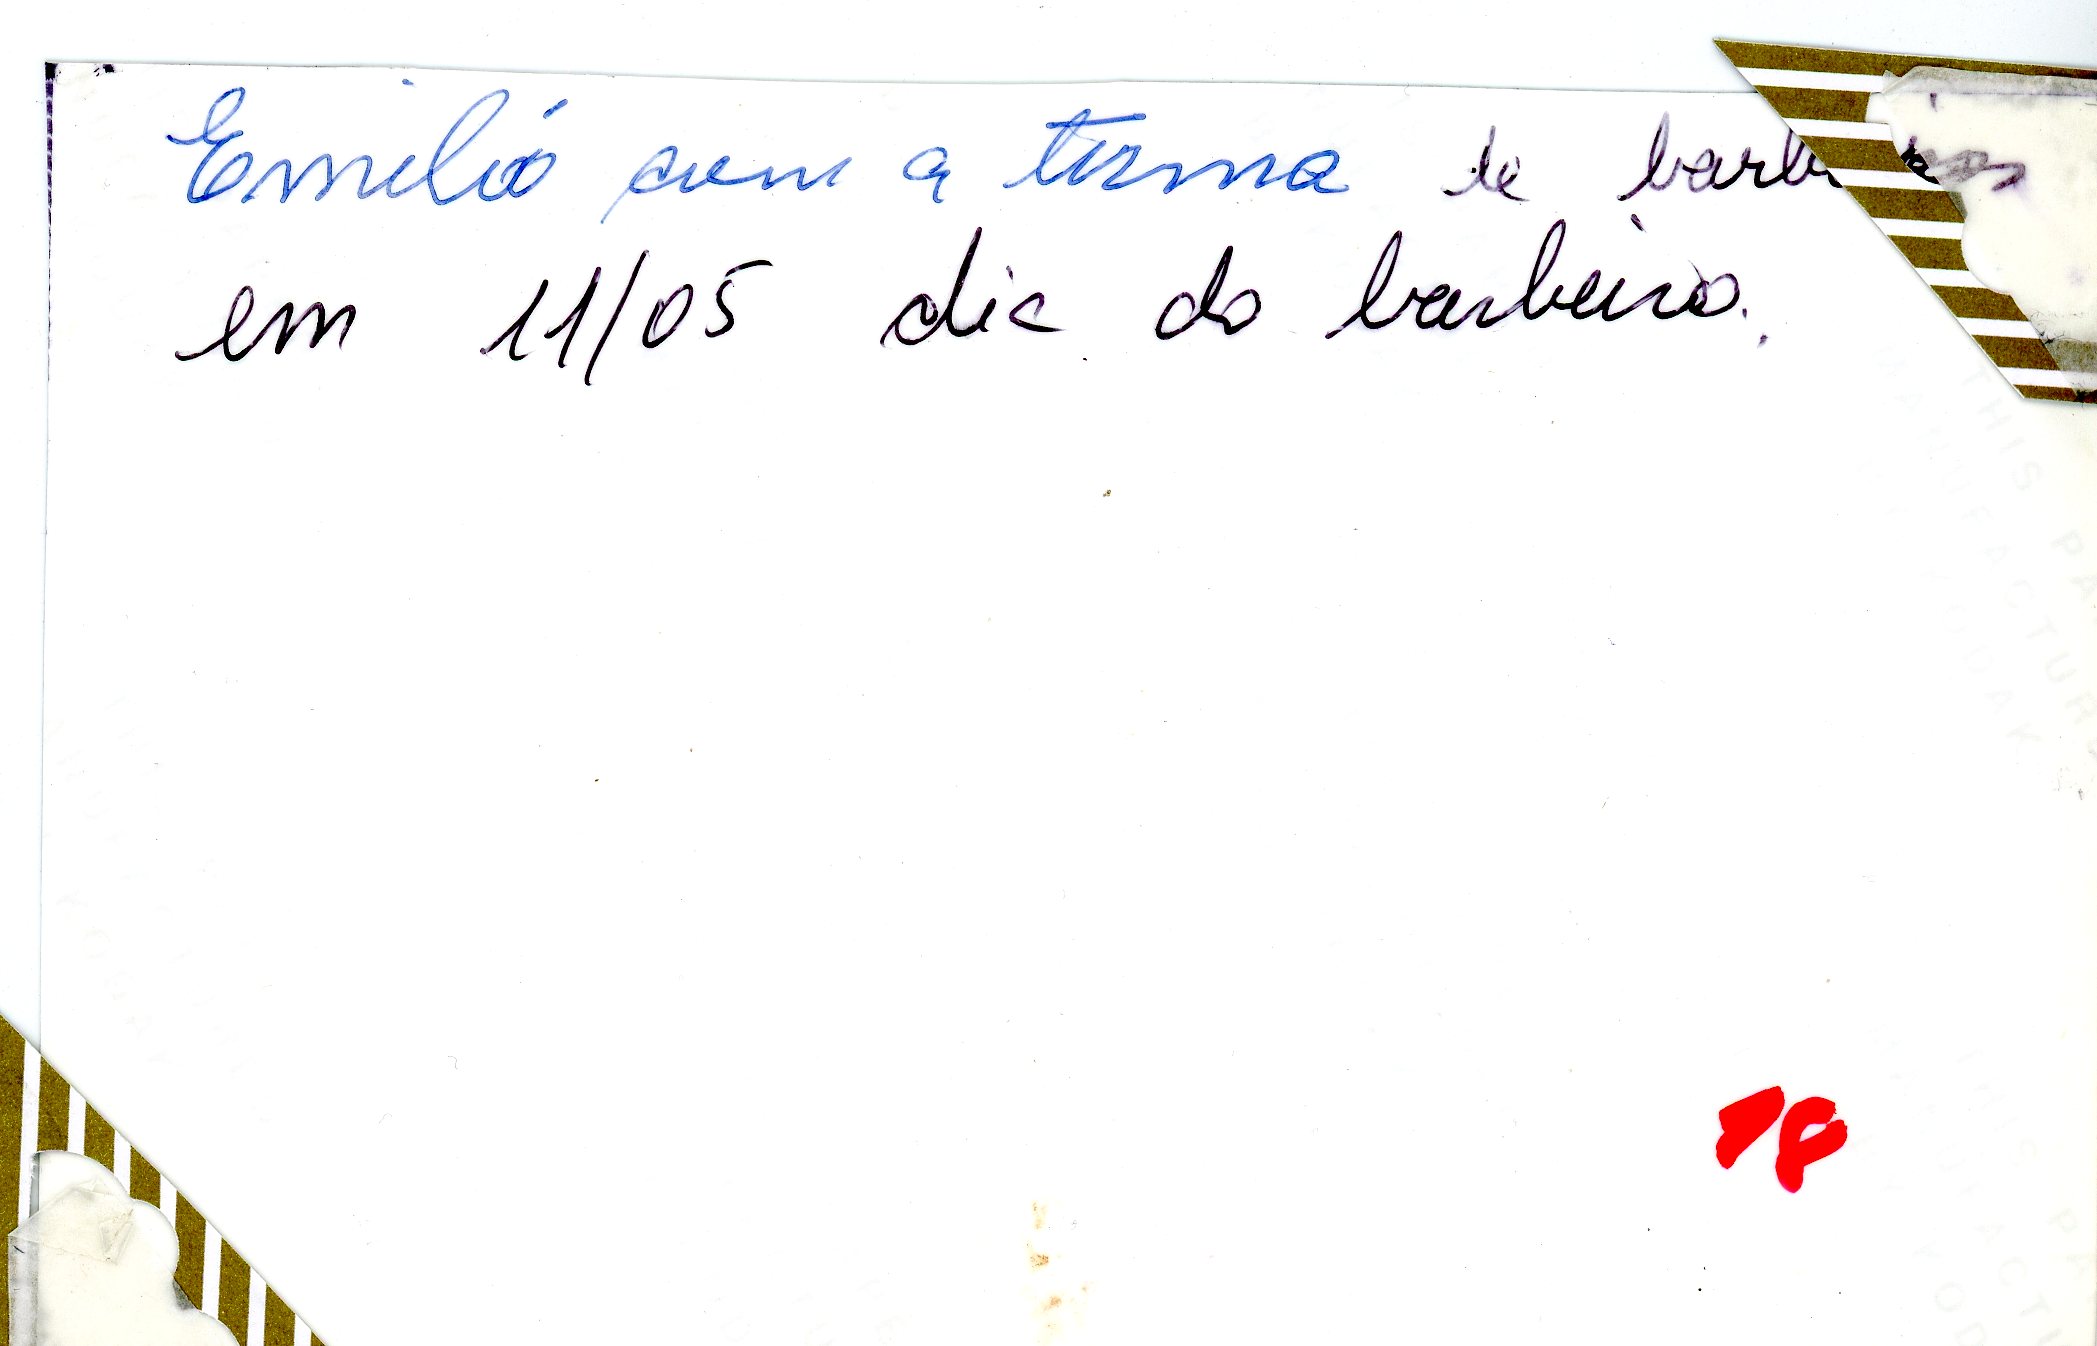 Emilio com a turma de barbeiros
em 11/05 dia do barbeiro.
18